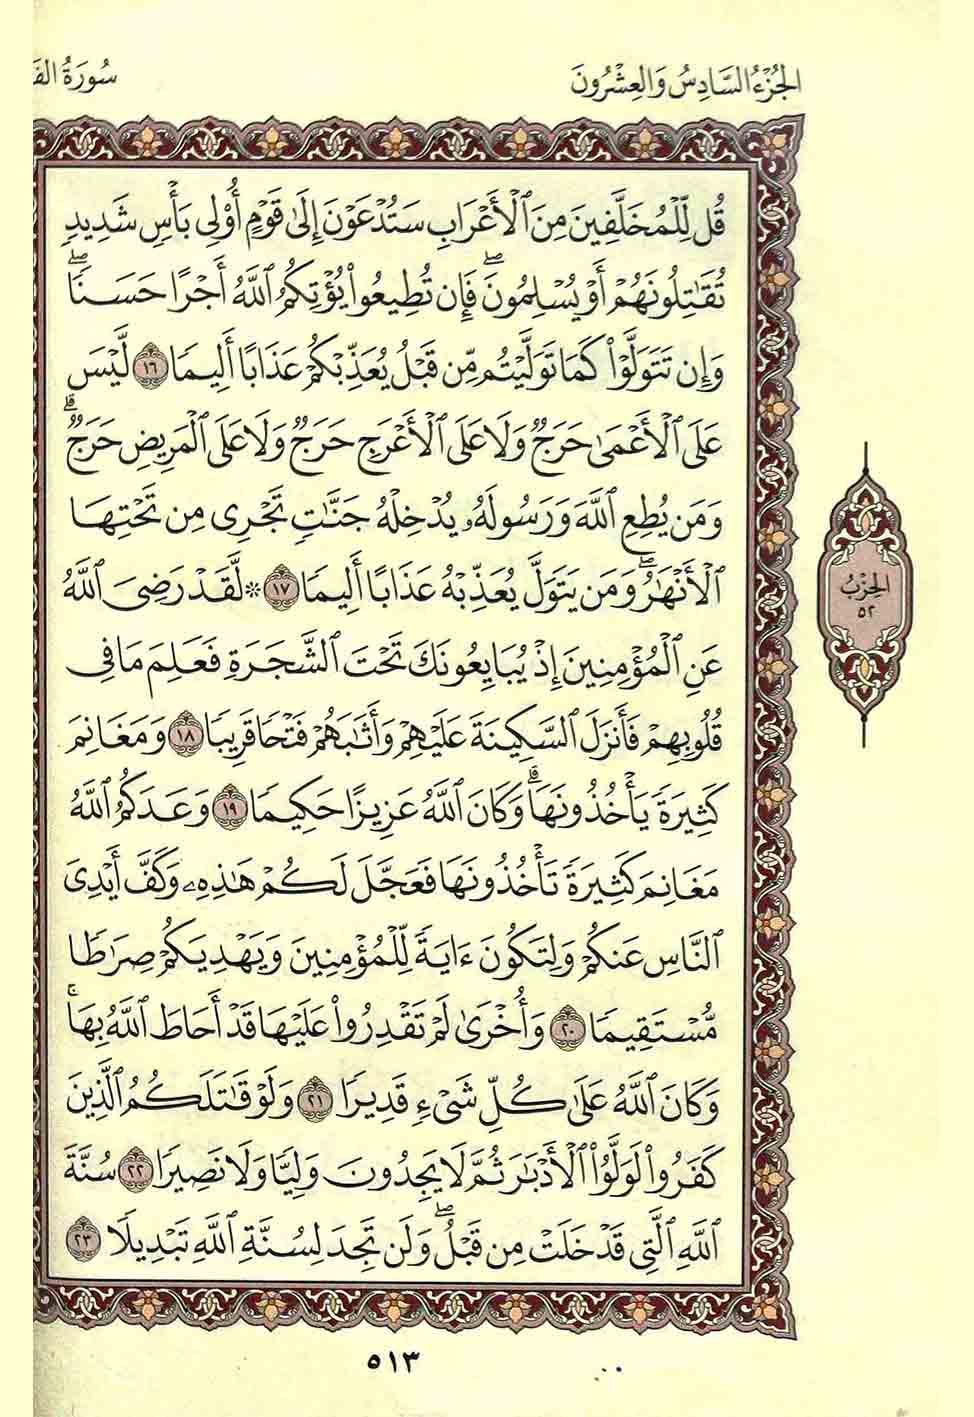 الجزء السادس والعشرون
سورة الف
قُل لِّلْمُخَلَّفِينَ مِنَ ٱلْأَعْرَابِ سَتُدْعَوْنَ إِلَىٰ قَوْمٍ أُو۟لِى بَأْسٍ شَدِيدٍ
تُقَٰتِلُونَهُمْ أَوْ يُسْلِمُونَ ۖ فَإِن تُطِيعُوا۟ يُؤْتِكُمُ ٱللَّهُ أَجْرًا حَسَنًا ۖ
وَإِن تَتَوَلَّوْا۟ كَمَا تَوَلَّيْتُم مِّن قَبْلُ يُعَذِّبْكُمْ عَذَابًا أَلِيمًا ١٦ لَّيْسَ
عَلَى ٱلْأَعْمَىٰ حَرَجٌ وَلَا عَلَى ٱلْأَعْرَجِ حَرَجٌ وَلَا عَلَى ٱلْمَرِيضِ حَرَجٌ ۗ
وَمَن يُطِعِ ٱللَّهَ وَرَسُولَهُۥ يُدْخِلْهُ جَنَّٰتٍ تَجْرِى مِن تَحْتِهَا
ٱلْأَنْهَٰرُ ۖ وَمَن يَتَوَلَّ يُعَذِّبْهُ عَذَابًا أَلِيمًا ١٧ * لَّقَدْ رَضِىَ ٱللَّهُ
عَنِ ٱلْمُؤْمِنِينَ إِذْ يُبَايِعُونَكَ تَحْتَ ٱلشَّجَرَةِ فَعَلِمَ مَا فِى
قُلُوبِهِمْ فَأَنزَلَ ٱلسَّكِينَةَ عَلَيْهِمْ وَأَثَٰبَهُمْ فَتْحًا قَرِيبًا ١٨ وَمَغَانِمَ
كَثِيرَةً يَأْخُذُونَهَا ۗ وَكَانَ ٱللَّهُ عَزِيزًا حَكِيمًا ١٩ وَعَدَكُمُ ٱللَّهُ
مَغَانِمَ كَثِيرَةً تَأْخُذُونَهَا فَعَجَّلَ لَكُمْ هَٰذِهِۦ وَكَفَّ أَيْدِىَ
ٱلنَّاسِ عَنكُمْ وَلِتَكُونَ ءَايَةً لِّلْمُؤْمِنِينَ وَيَهْدِيَكُمْ صِرَٰطًا
مُّسْتَقِيمًا ٢٠ وَأُخْرَىٰ لَمْ تَقْدِرُوا۟ عَلَيْهَا قَدْ أَحَاطَ ٱللَّهُ بِهَا ۚ
وَكَانَ ٱللَّهُ عَلَىٰ كُلِّ شَىْءٍ قَدِيرًا ٢١ وَلَوْ قَٰتَلَكُمُ ٱلَّذِينَ
كَفَرُوا۟ لَوَلَّوُا۟ ٱلْأَدْبَٰرَ ثُمَّ لَا يَجِدُونَ وَلِيًّا وَلَا نَصِيرًا ٢٢ سُنَّةَ
ٱللَّهِ ٱلَّتِى قَدْ خَلَتْ مِن قَبْلُ ۖ وَلَن تَجِدَ لِسُنَّةِ ٱللَّهِ تَبْدِيلًا ٢٣
الحزب
٥٢
٥١٣